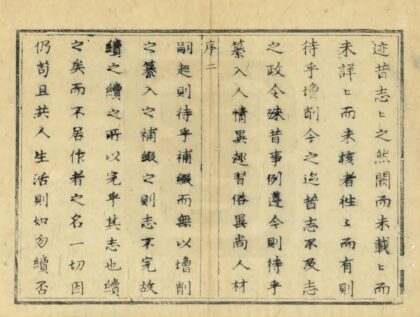 迹昔志〻之然闕而未載〻而
未詳〻而未核者徃〻而有則
待乎增削今之迄昔志不及志
之政令殊昔事例遵今則待乎
纂入人情異趣習俗異尚人材
序二
嗣起則待乎補綴而無以增削
之纂入之補綴之則志不完故
續之續之所以完乎其志也續
之矣而不居作者之名一切因
仍苟且共人生活則如勿續否